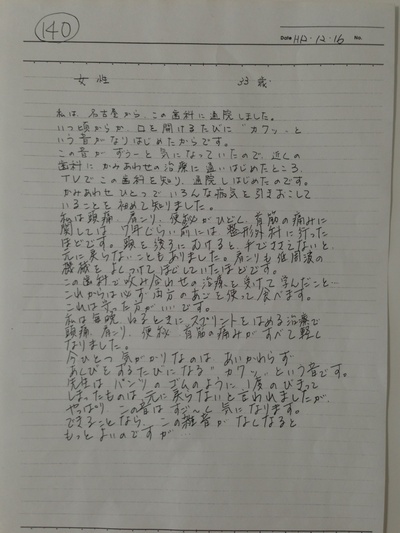 140
Date H12・12・16 No.
女性 33歳
私は 名古屋から、この歯科に通院しました。
いつ頃からか、口を開けるたびに"カクッ"と
いう音がなりはじめたからです。
この音が ずうーと 気になっていたので、近くの
歯科に かみあわせの治療に 通いはじめたところ、
TVで この歯科を知り、通院しはじめたのです。
かみあわせ ひとつで いろんな病気を 引きおこして
いることを 初めて知りました。
私は 頭痛、肩こり、便秘がひどく、背筋の痛みに
関しては 7年ぐらい前には 整形外科に行った
ほどです。頭を後ろにむけると、手でささえないと、
元に戻らないこともありました。肩こりも低周波の
機械を よくつけて ほぐしていたほどです。
この歯科で咬み合わせの治療を受けて 学んだこと…
これからは必ず両方のあごを使って食べます。
これは守った方がいいです。
私は 毎晩 ねるときに スプリントを はめる治療で
頭痛、肩こり、便秘、背筋の痛みがすべて軽く
なりました。
今ひとつ 気がかりなのは あいかわらず
あくびをするたびになる"カクッ"という音です。
先生は パンツのゴムのように 1度のびきって
しまったものは 元に戻らないと 言われましたが、
やっぱり この音は すご〜く 気になります。
できることなら、この雑音が なくなると
もっとよいのですが